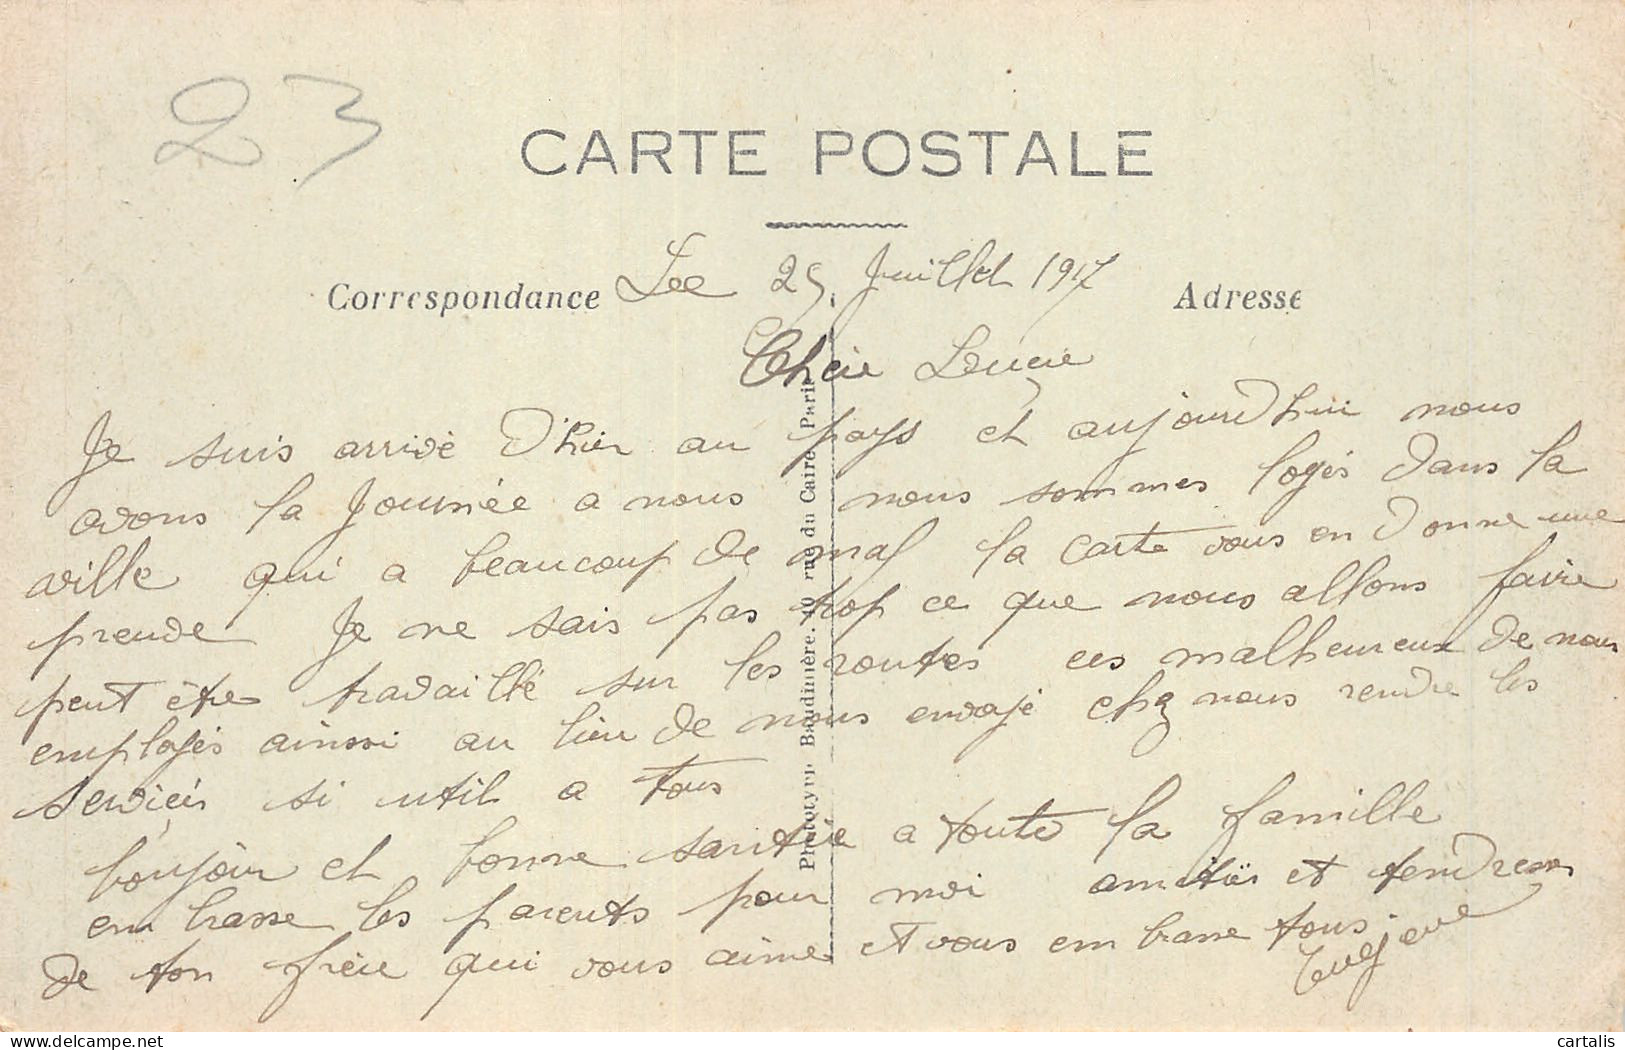 23
CARTE POSTALE
Correspondance
Adresse
Phototypie Baudinière. 40 rue du Caire, Paris
Lee 25 Juillet 1917
Chèie Lucie
Je suis arrivé d'hier au pays et aujourdhui nous
avons la journée a nous nous sommes logés dans la
ville qui a beaucoup de mal la carte vous en donne une
preuve Je ne sais pas trop ce que nous allons faire
peut être travaillé sur les routes ces malheureux de nous
employés ainssi au lieu de nous envoyé chez nous rendre les
services si util a tous
boujour et bonne santée a toute la famille
embrasse les parents pour moi amitiés et tendresse
de ton frère qui vous aime et vous embrasse tous
cartalis
delcampe.net